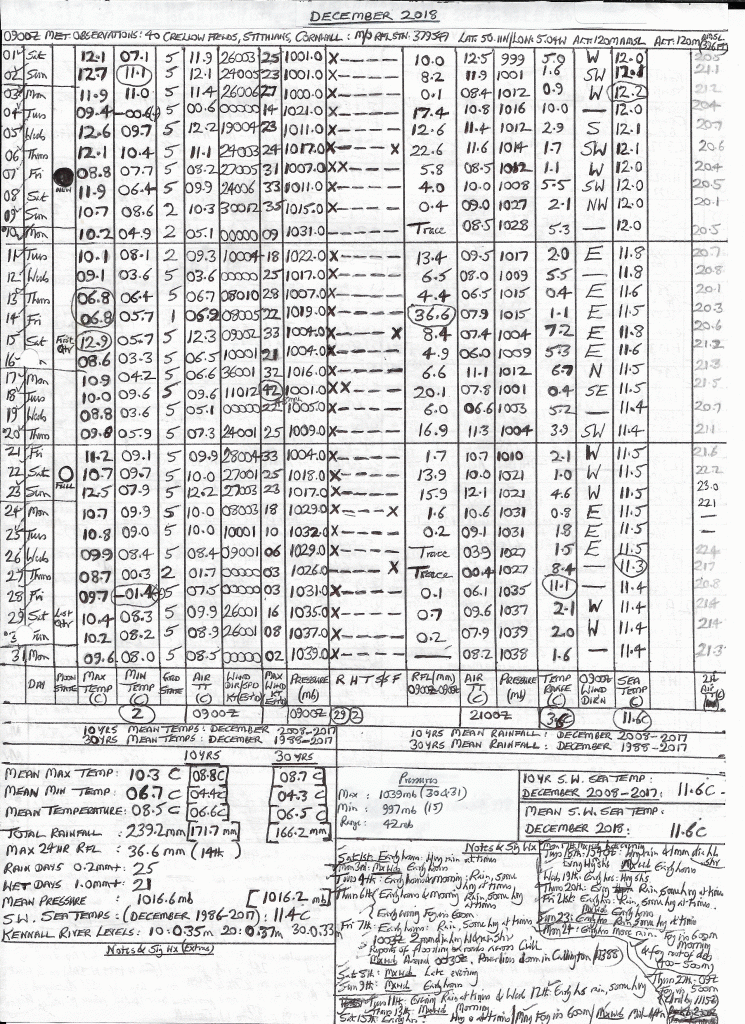 DECEMBER 2018
0900Z MET OBSERVATIONS: 40 CRELLOW FIELDS, STITHIANS, CORNWALL: LAT: 50.11N/LON: 5.04W ACT: 120M AMSL
01 Sat 12.1 07.1 5 11.9 26003 25 1001.0 X---- 10.0 12.5 999 5.0 W 12.0 20.5
02 Sun 12.7 11.1 5 12.1 24005 23 1001.0 X---- 8.2 11.9 1001 1.6 SW 12.1 21.1
03 Mon 11.9 11.0 5 11.4 26006 27 1000.0 X---- 0.1 08.4 1012 0.9 W 12.2 21.2
04 Tues 09.4 -00.6 5 00.6 00000 14 1021.0 X---- 17.4 10.8 1016 10.0 — 12.0 20.4
05 Wed 12.6 09.7 5 12.2 19004 23 1011.0 X---- 12.6 11.4 1012 2.9 S 12.1 20.7
06 Thurs 12.1 10.4 5 11.1 24003 24 1017.0 X---X 22.6 11.6 1014 1.7 SW 12.1 20.6
07 Fri 08.8 07.7 5 08.2 27005 31 1007.0 XX--- 5.8 08.5 1012 1.1 W 12.0 20.4
08 Sat NEW 11.9 06.4 5 09.9 24006 33 1011.0 X---- 4.0 10.0 1008 5.5 SW 12.0 20.5
09 Sun 10.7 08.6 2 10.3 30012 35 1015.0 X---- 0.4 09.0 1027 2.1 NW 12.0 20.1
10 Mon 10.2 04.9 2 05.1 00000 09 1031.0 ----- Trace 08.5 1028 5.3 — 12.0 20.5
11 Tues 10.1 08.1 2 09.3 10004 18 1022.0 X---- 13.4 09.5 1017 2.0 E 11.8 20.7
12 Wed 09.1 03.6 5 03.6 00000 25 1017.0 X---- 6.5 08.0 1009 5.5 — 11.8 20.8
13 Thurs 06.8 06.4 5 06.7 08010 28 1007.0 X---- 4.4 06.5 1015 0.4 E 11.6 20.1
14 Fri 06.8 05.7 1 06.2 08005 22 1019.0 X---- 36.6 07.9 1015 1.1 E 11.5 20.3
15 Sat First Qty 12.9 05.7 5 12.3 09002 33 1004.0 X---X 8.4 07.4 1004 7.2 E 11.8 20.6
16 08.6 03.3 5 06.5 10001 21 1004.0 X---- 4.9 06.0 1009 5.3 E 11.6 21.2
17 Mon 10.9 04.2 5 06.6 36001 32 1016.0 X---- 6.6 11.1 1012 6.7 N 11.5 21.3
18 Tues 10.0 09.6 5 09.6 11012 42 1001.0 XX--- 20.1 07.8 1001 0.4 SE 11.5 21.5
19 Wed 08.8 03.6 5 05.1 00000 1005.0 X---- 6.0 06.6 1003 5.2 — 11.4 20.7
20 Thurs 09.8 05.9 5 07.3 24001 25 1009.0 X---- 16.9 11.3 1004 3.9 SW 11.4 21.1
21 Fri 11.2 09.1 5 09.9 28004 33 1004.0 X---- 1.7 10.7 1010 2.1 W 11.5 21.6
22 Sat FULL 10.7 09.7 5 10.0 27001 25 1018.0 X---- 13.9 10.0 1021 1.0 W 11.5 22.2
23 Sun 12.5 07.9 5 12.2 27003 23 1017.0 X---- 15.9 12.1 1021 4.6 W 11.5 23.0
24 Mon 10.7 09.9 5 10.0 08003 18 1029.0 X---X 1.6 10.6 1031 0.8 E 11.5 22.1
25 Tues 10.8 09.0 5 10.0 10001 10 1032.0 X---- 0.2 09.1 1031 1.8 E 11.5 —
26 Wed 09.9 08.4 5 08.4 09001 06 1029.0 ----- Trace 03.9 1027 1.5 E 11.5 22.4
27 Thurs 08.7 00.3 2 01.7 00000 03 1026.0 ----X Trace 00.4 1027 8.4 — 11.3 21.7
28 Fri 09.7 -01.4 5 07.5 00000 03 1031.0 X---- 0.1 06.1 1035 11.1 — 11.4 20.8
29 Sat Last Qty 10.4 08.3 5 09.9 26001 16 1035.0 X---- 0.7 09.6 1037 2.1 W 11.4 21.4
3 Sun 10.2 08.2 5 08.9 26001 08 1037.0 X---- 0.2 07.9 1039 2.0 W 11.4 21.4
31 Mon 09.6 08.0 5 08.5 00000 02 1039.0 ----- — 08.2 1038 1.6 — 11.4 21.3
DAY MOON STATE MAX TEMP (C) MIN TEMP (C) GRD STATE AIR TT (C) WIND DIR/SPD KT (ESTD) MAX WIND KT PRESSURE (mb) R H T S/F RFL (mm) 0900Z-0900Z AIR TT (C) PRESSURE (mb) TEMP RANGE (C) 0900Z WIND DIRN SEA TEMP (C)
2 0900Z 0900Z 29 2 2100Z 11.6C
10 YRS MEAN TEMPS: DECEMBER 2008-2017
30 YRS MEAN TEMPS: DECEMBER 1988-2017
10 YRS MEAN RAINFALL: DECEMBER 2008-2017
30 YRS MEAN RAINFALL: DECEMBER 1988-2017
10 YRS 30 YRS
MEAN MAX TEMP: 10.3 C 08.8C 08.7 C
MEAN MIN TEMP: 06.7 C 04.4C 04.3 C
MEAN TEMPERATURE: 08.5 C 06.6C 06.5 C
TOTAL RAINFALL: 239.2mm 171.7 mm 166.2 mm
MAX 24HR RFL: 36.6 mm (14th)
RAIN DAYS 0.2mm+: 25
WET DAYS 1.0mm+: 21
MEAN PRESSURE: 1016.6 mb [1016.2 mb]
S.W. SEA TEMPS: (DECEMBER 1986-2017): 11.4C
KENNALL RIVER LEVELS: 10: 0.35m 20: 0.37m 30: 0.33m
Notes & Sig Wx (Extras)
Pressures
Max: 1039mb (30&31)
Min: 997mb (15)
Range: 42mb
10 YR S.W. SEA TEMP:
DECEMBER 2008-2017: 11.6C
MEAN S.W. SEA TEMP:
DECEMBER 2018: 11.6C
Notes & Sig Wx
Sat 1st: Early hours: Hvy rain at times
Mon 3rd: Early hours
Tues 4th: Early hours & morning: Rain, some hvy at times
Thurs 6th: Early hours & morning Rain, some hvy at times
Early evening Fog in 600m
Fri 7th: Early hours: Rain, some hvy at times
Reports of flooding on roads across Cwll
Around 0030Z. Power lines down in Callington
Sat 8th: Late evening
Sun 9th: Early hours
Tues 11th: Evening Rain at times & Wed 12th Early hrs rain, some hvy
Thurs 13th: Morning
Sat 15th: Early hrs:
Wed 19th: Early hrs: Hvy shs
Thurs 20th: Rain, some hvy at times
Fri 21st: Early hrs: Rain, some hvy at times
Sun 23: Early hrs: Rain, some hvy at times